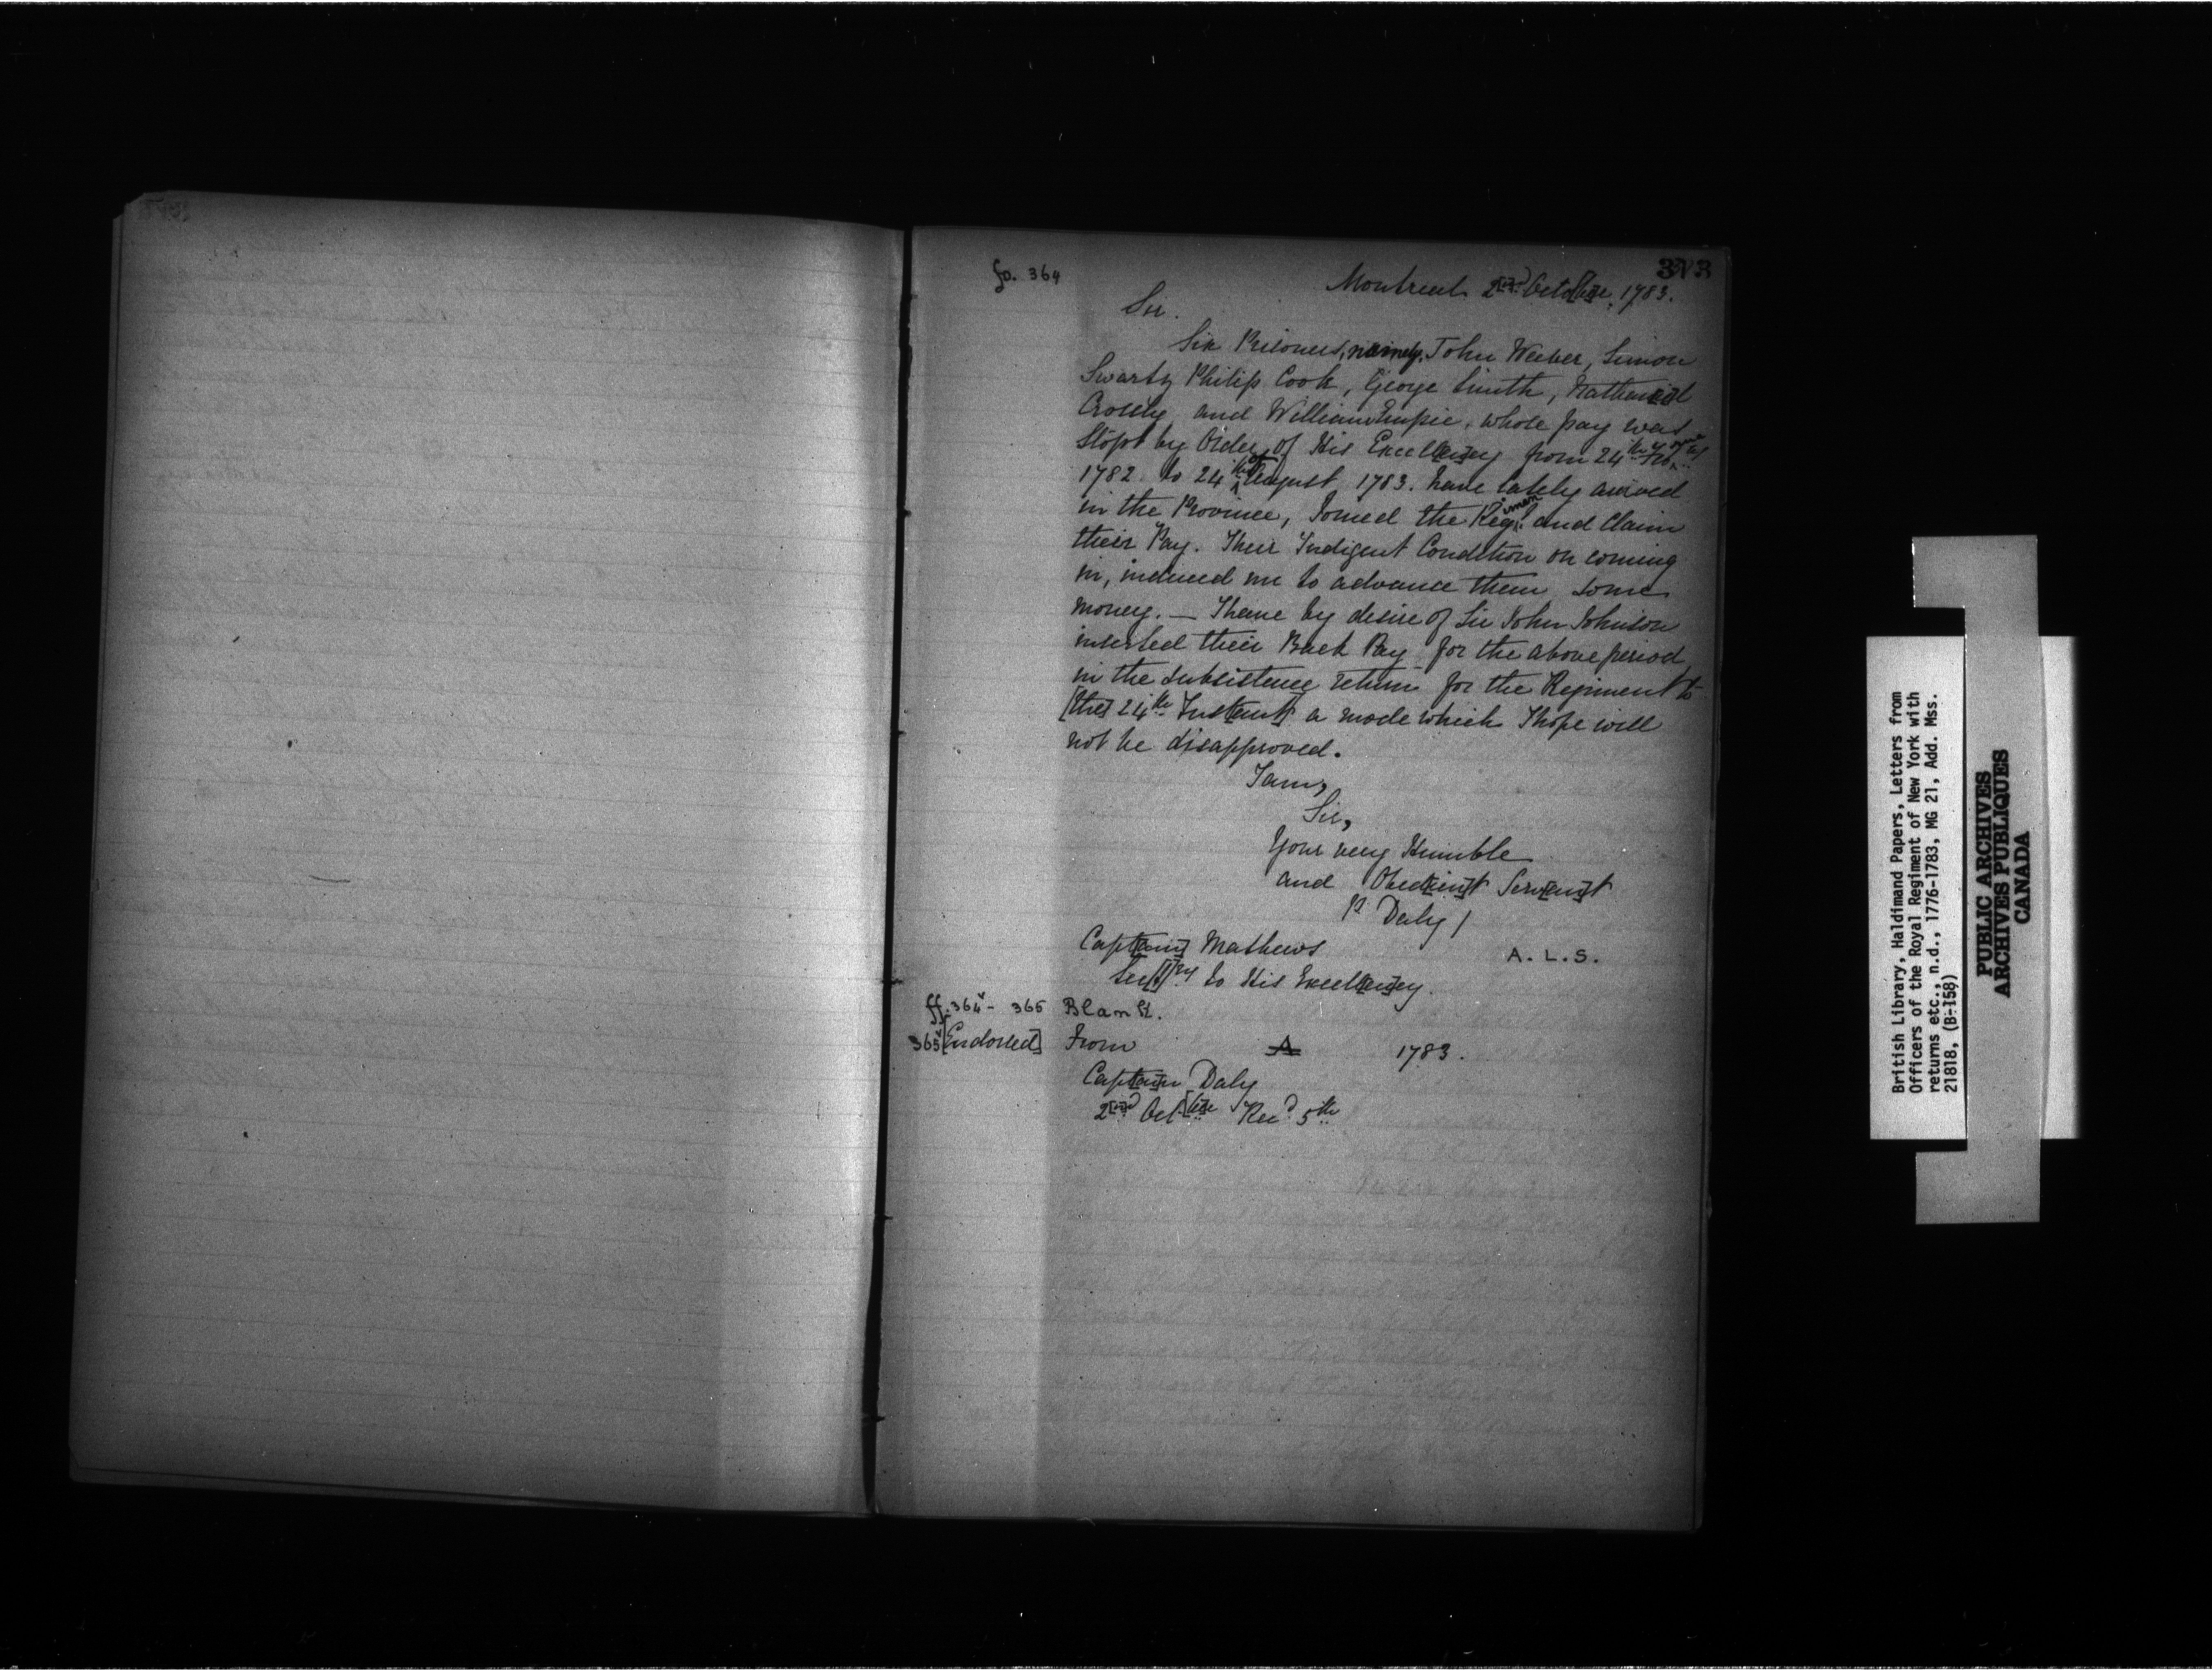 373
fo. 364
Montreal 2[nd] Octo[be]r, 1783.
Sir.
Six Prisoners, namely, John Weeber, Simon
Swartz Philip Cook, George Smith, Nathaniel
Crosby and William Empie, whose pay was
Stopt by Order of His Excell[en]cy from 24th
1782 to 24th of August 1783. have lately arrived
in the Province, Joined the Regiment and Claim
their Pay. Their Indigent Condition on coming
in, induced me to advance them some
money. — I have by desire of Sir John Johnson
inserted their Back Pay for the above period
in the subsistence return for the Regiment to
[the] 24th Inst[ant] a mode which I hope will
not be disapproved.
I am,
Sir,
Your very Humble
and Obed[ien]t Serv[an]t
P Daly /
Capt[ain] Mathews
A. L. S.
Sec[.]ry to His Excell[en]cy.
ff. 364v - 365 Blank.
365v [Endorsed] From A 1783.
Capt[ai]n Daly
2[nd] Oct[be]r Recd 5th
British Library, Haldimand Papers, Letters from
Officers of the Royal Regiment of New York with
returns etc., n.d., 1776-1783, MG 21, Add. Mss.
21818, (B-158)
PUBLIC ARCHIVES
ARCHIVES PUBLIQUES
CANADA